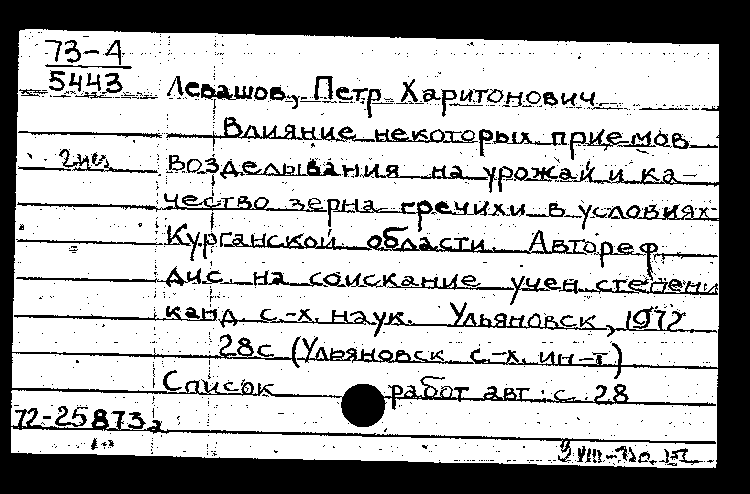 73-А
5443
Левашов, Петр Харитонович
Влияние некоторых приемов
возделывания на урожай и ка-
чество зерна гречихи в условиях
Курганской области. Автореф.
дис. на соискание учен. степени
канд. с.-х. наук. Ульяновск, 1972.
28с (Ульяновск. с.-х. ин-т)
Список работ авт.: с. 28
72-25873а